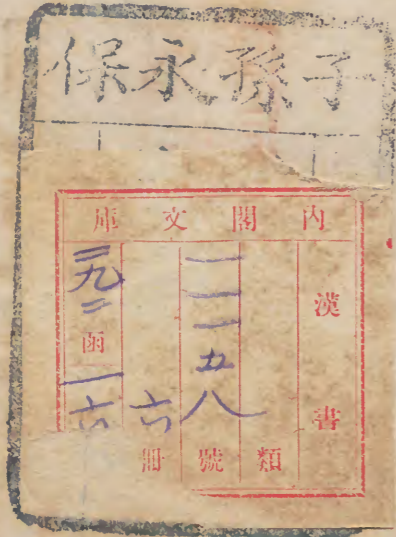 子孫永保
内閣文庫
漢書
類
一一一五八號
六冊
三九二函
一六